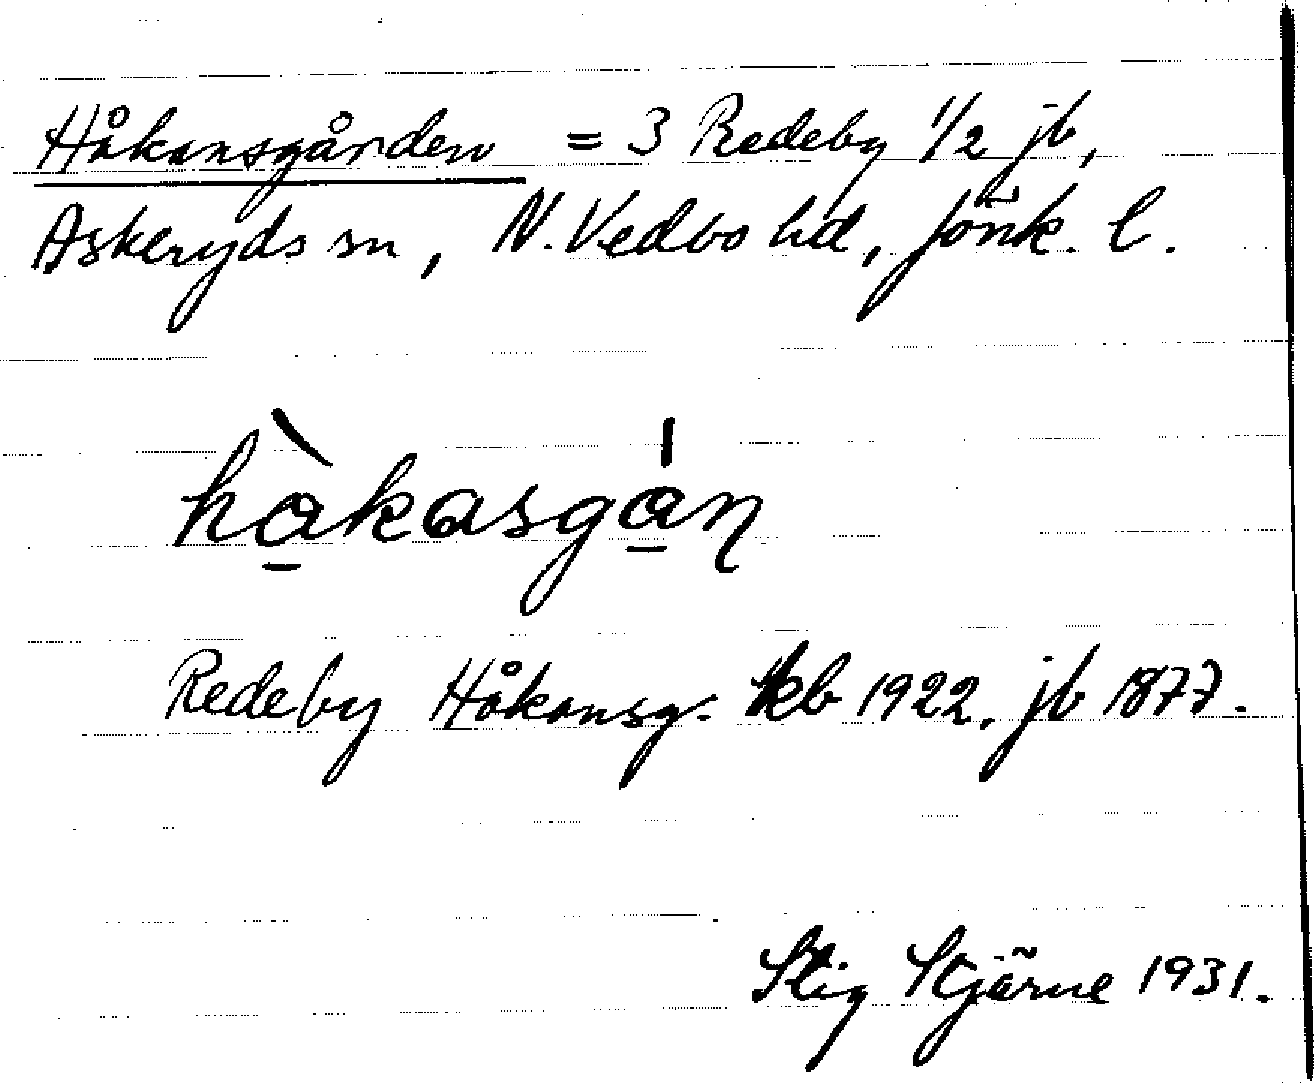 Håkansgården = 3 Redeby 1/2 jb,
Askeryds sn, N. Vedbo hd, Jönk. l.
hàkasgán
Redeby Håkansg. kb 1922, jb 1877.
Stig Stjärne 1931.